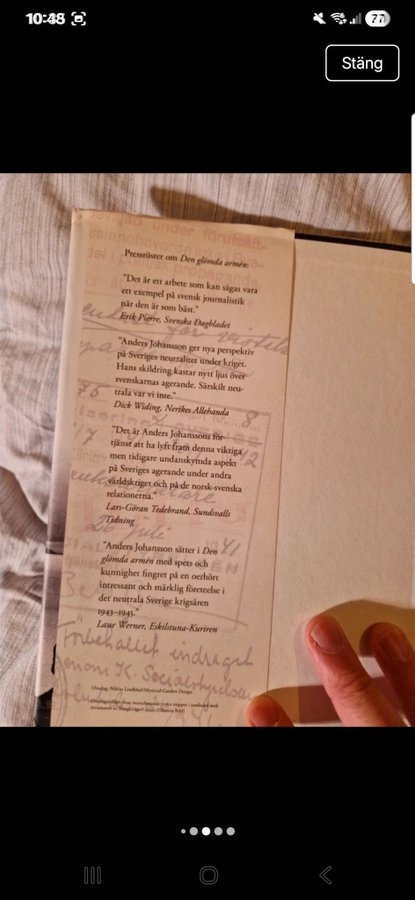 10:48
77
Stäng
Pressröster om Den glömda armén:
"Det är ett arbete som kan sägas vara
ett exempel på svensk journalistik
när den är som bäst."
Erik Pierre, Svenska Dagbladet
"Anders Johansson ger nya perspektiv
på Sveriges neutralitet under kriget.
Hans skildring kastar nytt ljus över
svenskarnas agerande. Särskilt neu-
trala var vi inte."
Dick Widing, Nerikes Allehanda
"Det är Anders Johanssons för-
tjänst att ha lyft fram denna viktiga
men tidigare undanskymda aspekt
på Sveriges agerande under andra
världskriget och på de norsk-svenska
relationerna."
Lars-Göran Tedebrand, Sundsvalls
Tidning
"Anders Johansson sätter i Den
glömda armén med spets och
kunnighet fingret på en oerhört
intressant och märklig företeelse i
det neutrala Sverige krigsåren
1943–1945."
Lasse Werner, Eskilstuna-Kuriren
Förbehållet indraget
genom K. Socialstyrelsen
Omslag: Niklas Lindblad/Mystical Garden Design